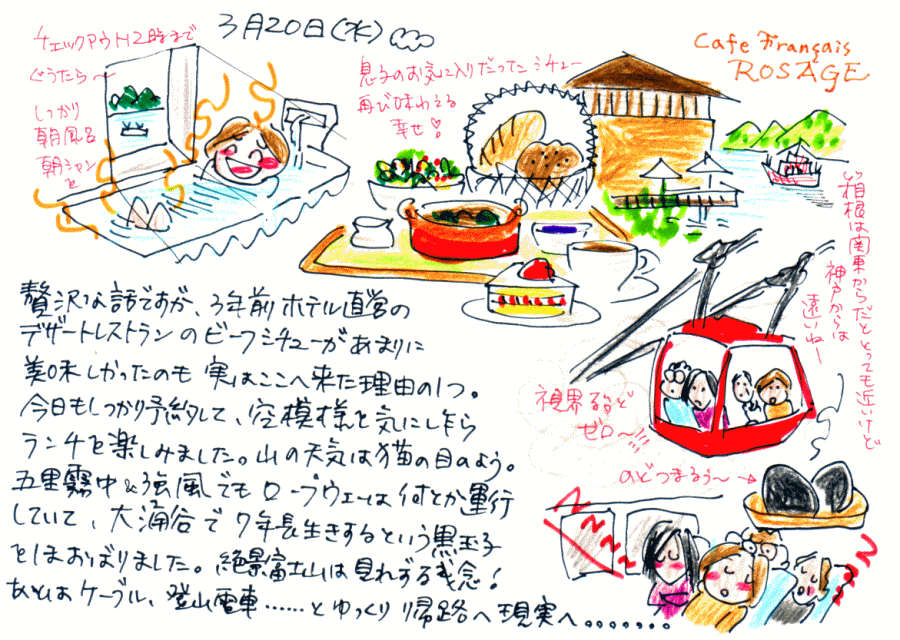 3月20日(水)
チェックアウト12時まで
ぐうたら〜
しっかり
朝風呂
朝シャンと
息子のお気に入りだったシチュー
再び味わえる
幸せ!
Cafe Français
ROSAGE
箱根は関東からだととっても近いけど
神戸からは
遠いねー
視界ほど
ゼロ〜!!!
のどつまるぅ〜→
贅沢な話ですが、3年前ホテル直営の
デザートレストランのビーフシチューがあまりに
美味しかったのも実はここへ来た理由の1つ。
今日もしっかり予約して、空模様を気にしながら
ランチを楽しみました。山の天気は猫の目のよう。
五里霧中&強風でもロープウェーは何とか運行
していて、大涌谷で7年長生きするという黒玉子
をほおばりました。絶景富士山は見れずる残念!
あとはケーブル、登山電車……とゆっくり帰路へ現実へ.......